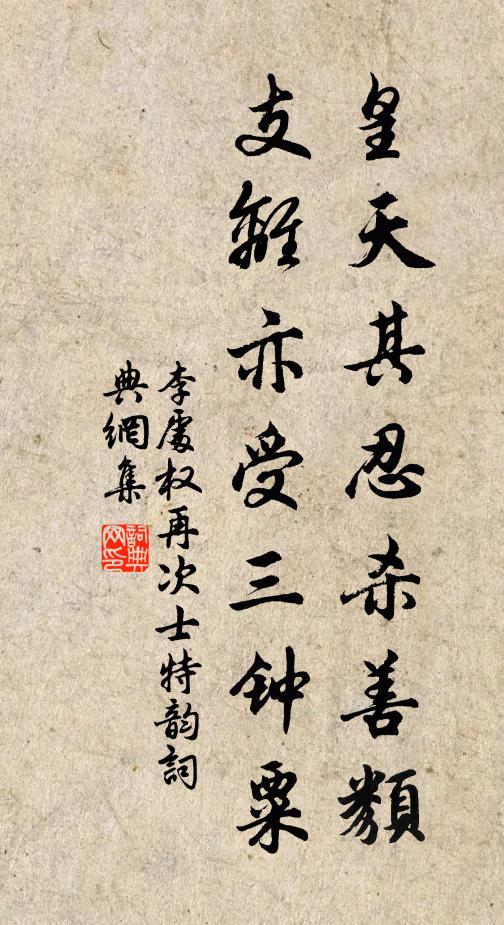 皇天其忍杀善類
支離亦受三钟粟
李處权再次士特韵詞
典網集
詞典
网印